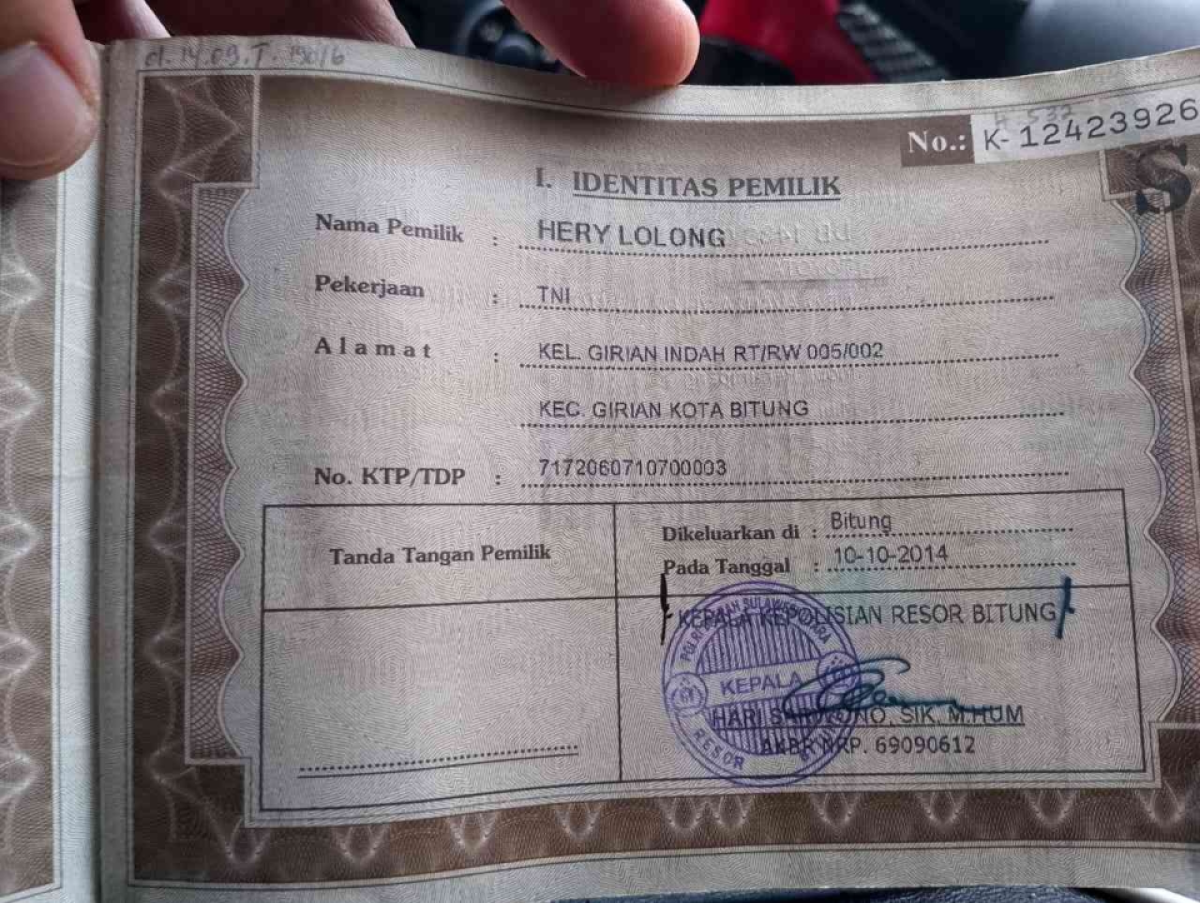 No.: K-12423926
S
I. IDENTITAS PEMILIK
Nama Pemilik : HERY LOLONG
Pekerjaan : TNI
Alamat : KEL. GIRIAN INDAH RT/RW 005/002
KEC. GIRIAN KOTA BITUNG
No. KTP/TDP : 7172060710700003
Tanda Tangan Pemilik
Dikeluarkan di : Bitung
Pada Tanggal : 10-10-2014
KEPALA KEPOLISIAN RESOR BITUNG
KEPALA
RESOR
HARI SIK, M.HUM
AKBP NRP. 69090612